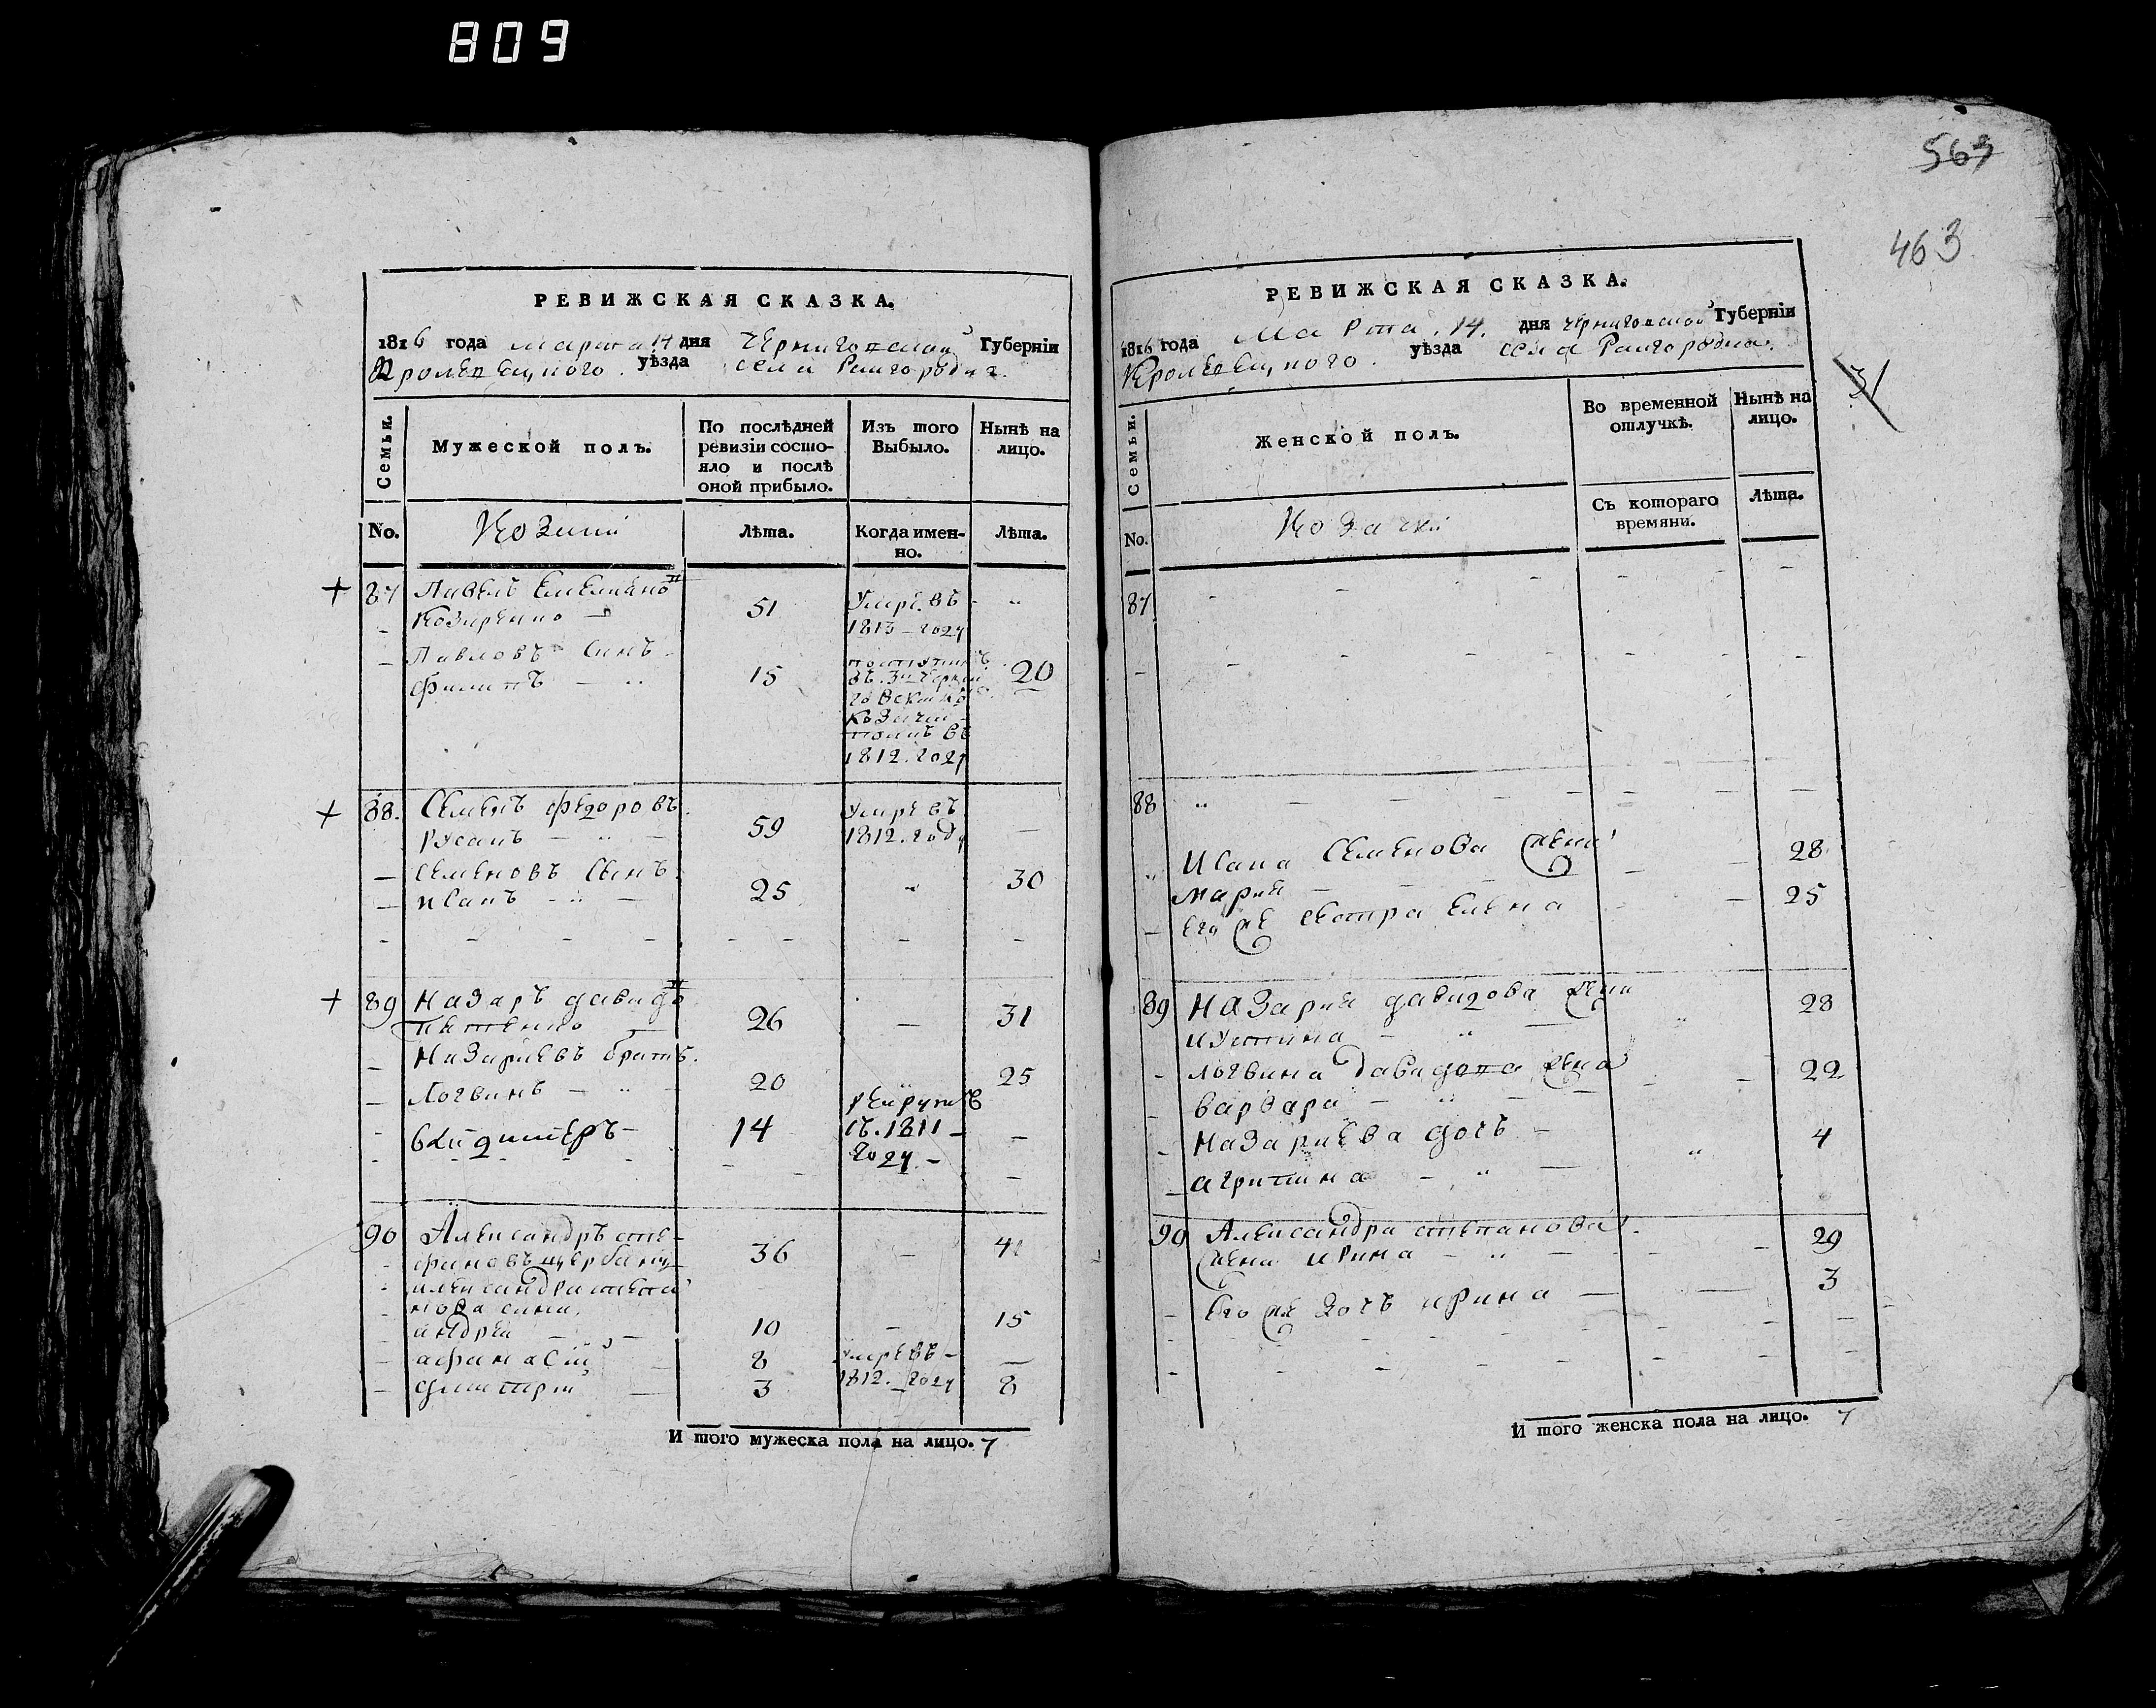 809
563
463
РЕВИЖСКАЯ СКАЗКА.
1816 года марта 14 дня Черниговской Губерніи
Кролевецкого уѣзда села Райгородка.
Семьи.
Мужеской полъ.
По послѣдней ревизіи состояло и послѣ оной прибыло.
Изъ того Выбыло.
Нынѣ на лицо.
No.
Козаки
Лѣта.
Когда именно.
Лѣта.
87 Павелъ Емельяно
Козиренко
51 Умре въ
1813 году
Павловъ синъ
Филипъ 15 20
козачий
полкъ въ
1812 году
88. Семенъ Федоровъ
Русанъ 59 Умре въ
1812 году
Семеновъ Синъ
Исапъ 25 30
89 Назаръ давидо
26 31
Назариевъ братъ
Логвинъ 20 25
димитеръ 14
1811
году
90 Александръ сте-
фановъ щербакъ 36 41
Александра степа
нова сини
андрей 10 15
афанасій 8 умре въ
1812 году
дмитрій 3 8
И того мужеска пола на лицо. 7
РЕВИЖСКАЯ СКАЗКА.
1816 года Марта 14 дня Черниговской Губерніи
Кролевецкого уѣзда села Райгородка.
Семьи.
Женской полъ.
Во временной отлучкѣ.
Нынѣ на лицо.
No.
Козачки
Съ котораго времяни.
Лѣта.
87
88
Исапа Семенова жена 28
Мария
Его же сестра Елена 25
89 Назария давидова жена 28
иустина
логвина давидова жена 22
варвара
Назариева дочъ 4
агрипина
90 Александра степанова
жена ирина 29
Его же дочъ ирина 3
И того женска пола на лицо. 7